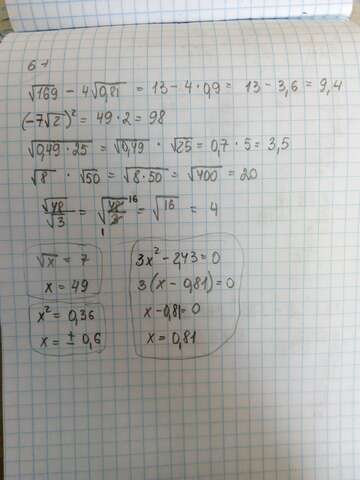 61
√169 − 4√0,81 = 13 − 4·0,9 = 13 − 3,6 = 9,4
(−7√2)² = 49·2 = 98
√0,49·25 = √0,49 · √25 = 0,7·5 = 3,5
√8 · √50 = √8·50 = √400 = 20
√48/√3 = √48/3 16 1 = √16 = 4
√x = 7
x = 49
x² = 0,36
x = ± 0,6
3x² − 2,43 = 0
3(x − 0,81) = 0
x − 0,81 = 0
x = 0,81